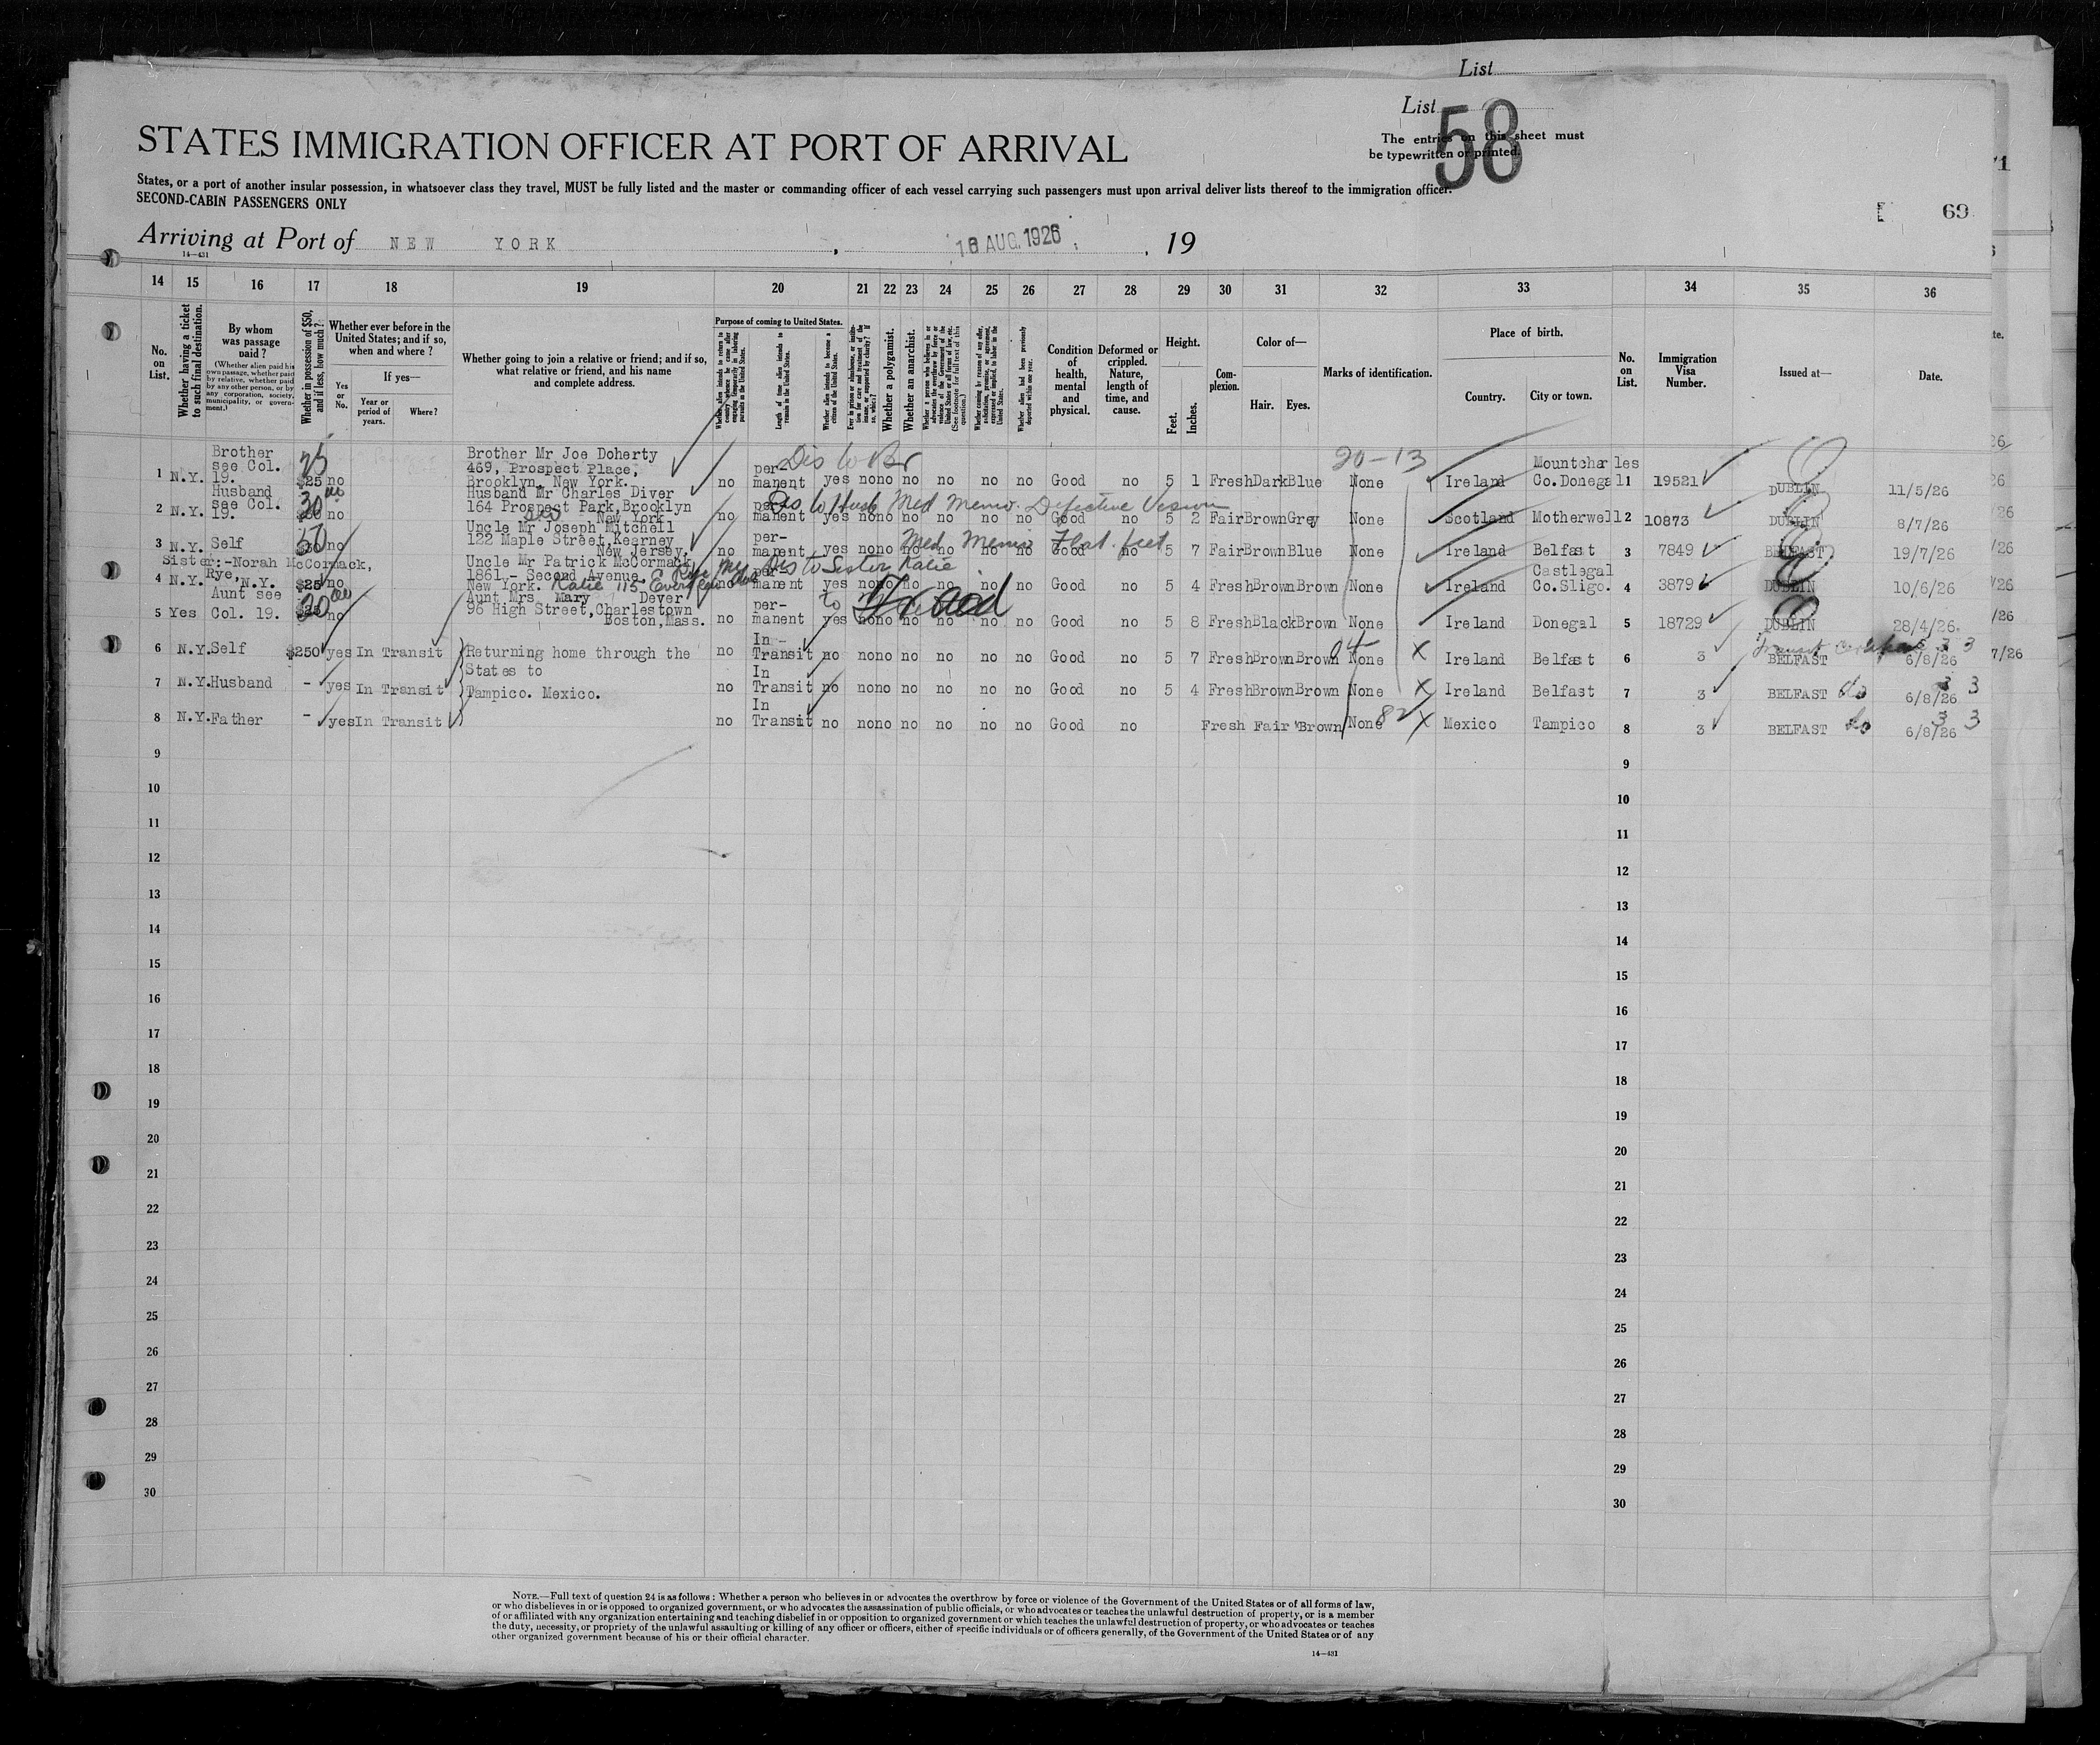 List
List
58
The entries on this sheet must
be typewritten or printed.
STATES IMMIGRATION OFFICER AT PORT OF ARRIVAL
States, or a port of another insular possession, in whatsoever class they travel, MUST be fully listed and the master or commanding officer of each vessel carrying such passengers must upon arrival deliver lists thereof to the immigration officer.
SECOND-CABIN PASSENGERS ONLY
69
Arriving at Port of NEW YORK, 16 AUG. 1926, 19
14—431
14 15 16 17 18 19 20 21 22 23 24 25 26 27 28 29 30 31 32 33 34 35 36
No. on List.
Whether having a ticket to such final destination.
By whom was passage paid?
(Whether alien paid his own passage, whether paid by relative, whether paid by any other person, or by any corporation, society, municipality, or government.)
Whether in possession of $50, and if less, how much?
Whether ever before in the United States; and if so, when and where?
Yes or No.
If yes—
Year or period of years.
Where?
Whether going to join a relative or friend; and if so, what relative or friend, and his name and complete address.
Purpose of coming to United States.
Length of time alien intends to remain in the United States.
Whether alien intends to become a citizen of the United States.
Whether a polygamist.
Whether an anarchist.
Condition of health, mental and physical.
Deformed or crippled. Nature, length of time, and cause.
Height.
Feet.
Inches.
Complexion.
Color of—
Hair.
Eyes.
Marks of identification.
Place of birth.
Country.
City or town.
No. on List.
Immigration Visa Number.
Issued at—
Date.
Dis to Br
20-13
1 N.Y. Brother see Col. 19. $25 no Brother Mr Joe Doherty 469, Prospect Place, Brooklyn, New York. no per-manent yes no no no no no no Good no 5 1 Fresh Dark Blue None Ireland Mountcharles Co.Donegal 1 19521 DUBLIN 11/5/26
Dis to Husb Med Memo. Defective Vision
2 N.Y. Husband see Col. 19. 30 no Husband Mr Charles Diver 164 Prospect Park, Brooklyn New York no per-manent yes no no no no no no Good no 5 2 Fair Brown Grey None Scotland Motherwell 2 10873 DUBLIN 8/7/26
Med Memo Flat feet
3 N.Y. Self 50 no Uncle Mr Joseph Mitchell 122 Maple Street, Kearney New Jersey, no per-manent yes no no no no no no Good no 5 7 Fair Brown Blue None Ireland Belfast 3 7849 BELFAST 19/7/26
Dis to Sister Katie
4 N.Y. Sister:-Norah McCormack, Rye, N.Y. $25 no Uncle Mr Patrick McCormack 1861,- Second Avenue, New York. Katie 115 no per-manent yes no no no no no no Good no 5 4 Fresh Brown Brown None Ireland Castlegal Co.Sligo. 4 3879 DUBLIN 10/6/26
5 Yes Aunt see Col. 19. 20 no Aunt Mrs Mary Dever 96 High Street, Charlestown Boston, Mass. no per-manent yes no no no no no no Good no 5 8 Fresh Black Brown None Ireland Donegal 5 18729 DUBLIN 28/4/26.
6 N.Y. Self $250 yes In Transit Returning home through the no In Transit no no no no no no no Good no 5 7 Fresh Brown Brown None X Ireland Belfast 6 3 BELFAST 6/8/26
7 N.Y. Husband - yes In Transit States to Tampico. Mexico. no In Transit no no no no no no no Good no 5 4 Fresh Brown Brown None X Ireland Belfast 7 3 BELFAST do 6/8/26 3
8 N.Y. Father - yes In Transit no In Transit no no no no no no no Good no Fresh Fair Brown None 82 X Mexico Tampico 8 3 BELFAST do 6/8/26 3
9 9
10 10
11 11
12 12
13 13
14 14
15 15
16 16
17 17
18 18
19 19
20 20
21 21
22 22
23 23
24 24
25 25
26 26
27 27
28 28
29 29
30 30
NOTE.—Full text of question 24 is as follows: Whether a person who believes in or advocates the overthrow by force or violence of the Government of the United States or of all forms of law,
or who disbelieves in or is opposed to organized government, or who advocates the assassination of public officials, or who advocates or teaches the unlawful destruction of property, or is a member
of or affiliated with any organization entertaining and teaching disbelief in or opposition to organized government or which teaches the unlawful destruction of property, or who advocates or teaches
the duty, necessity, or propriety of the unlawful assaulting or killing of any officer or officers, either of specific individuals or of officers generally, of the Government of the United States or of any
other organized government because of his or their official character.
14—431